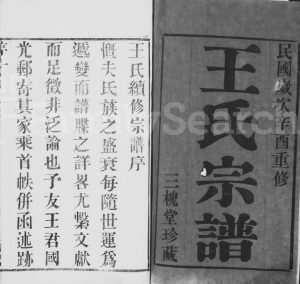 民國歲次辛酉重修
王氏宗譜
三槐堂珍藏
王氏續修宗譜序
慨夫氏族之盛衰每隨世運爲
遞變而譜牒之詳畧尤繫文獻
而足徵非泛論也予友王君國
光郵寄其家乘首帙併函述跡